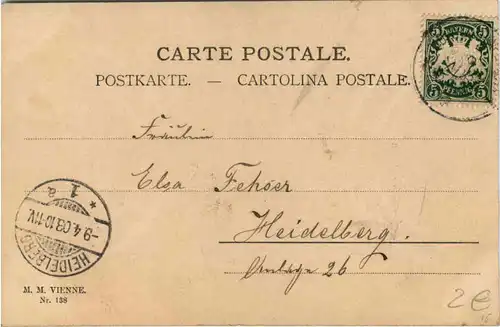 CARTE POSTALE.
POSTKARTE. — CARTOLINA POSTALE.
BAYERN
5 5
PFENNIG
Fräulein
Elsa Fehser
Heidelberg.
Anlage 26
HEIDELBERG
* 1 a
-9.4.03.10-11V.
M. M. VIENNE.
Nr. 138
2€